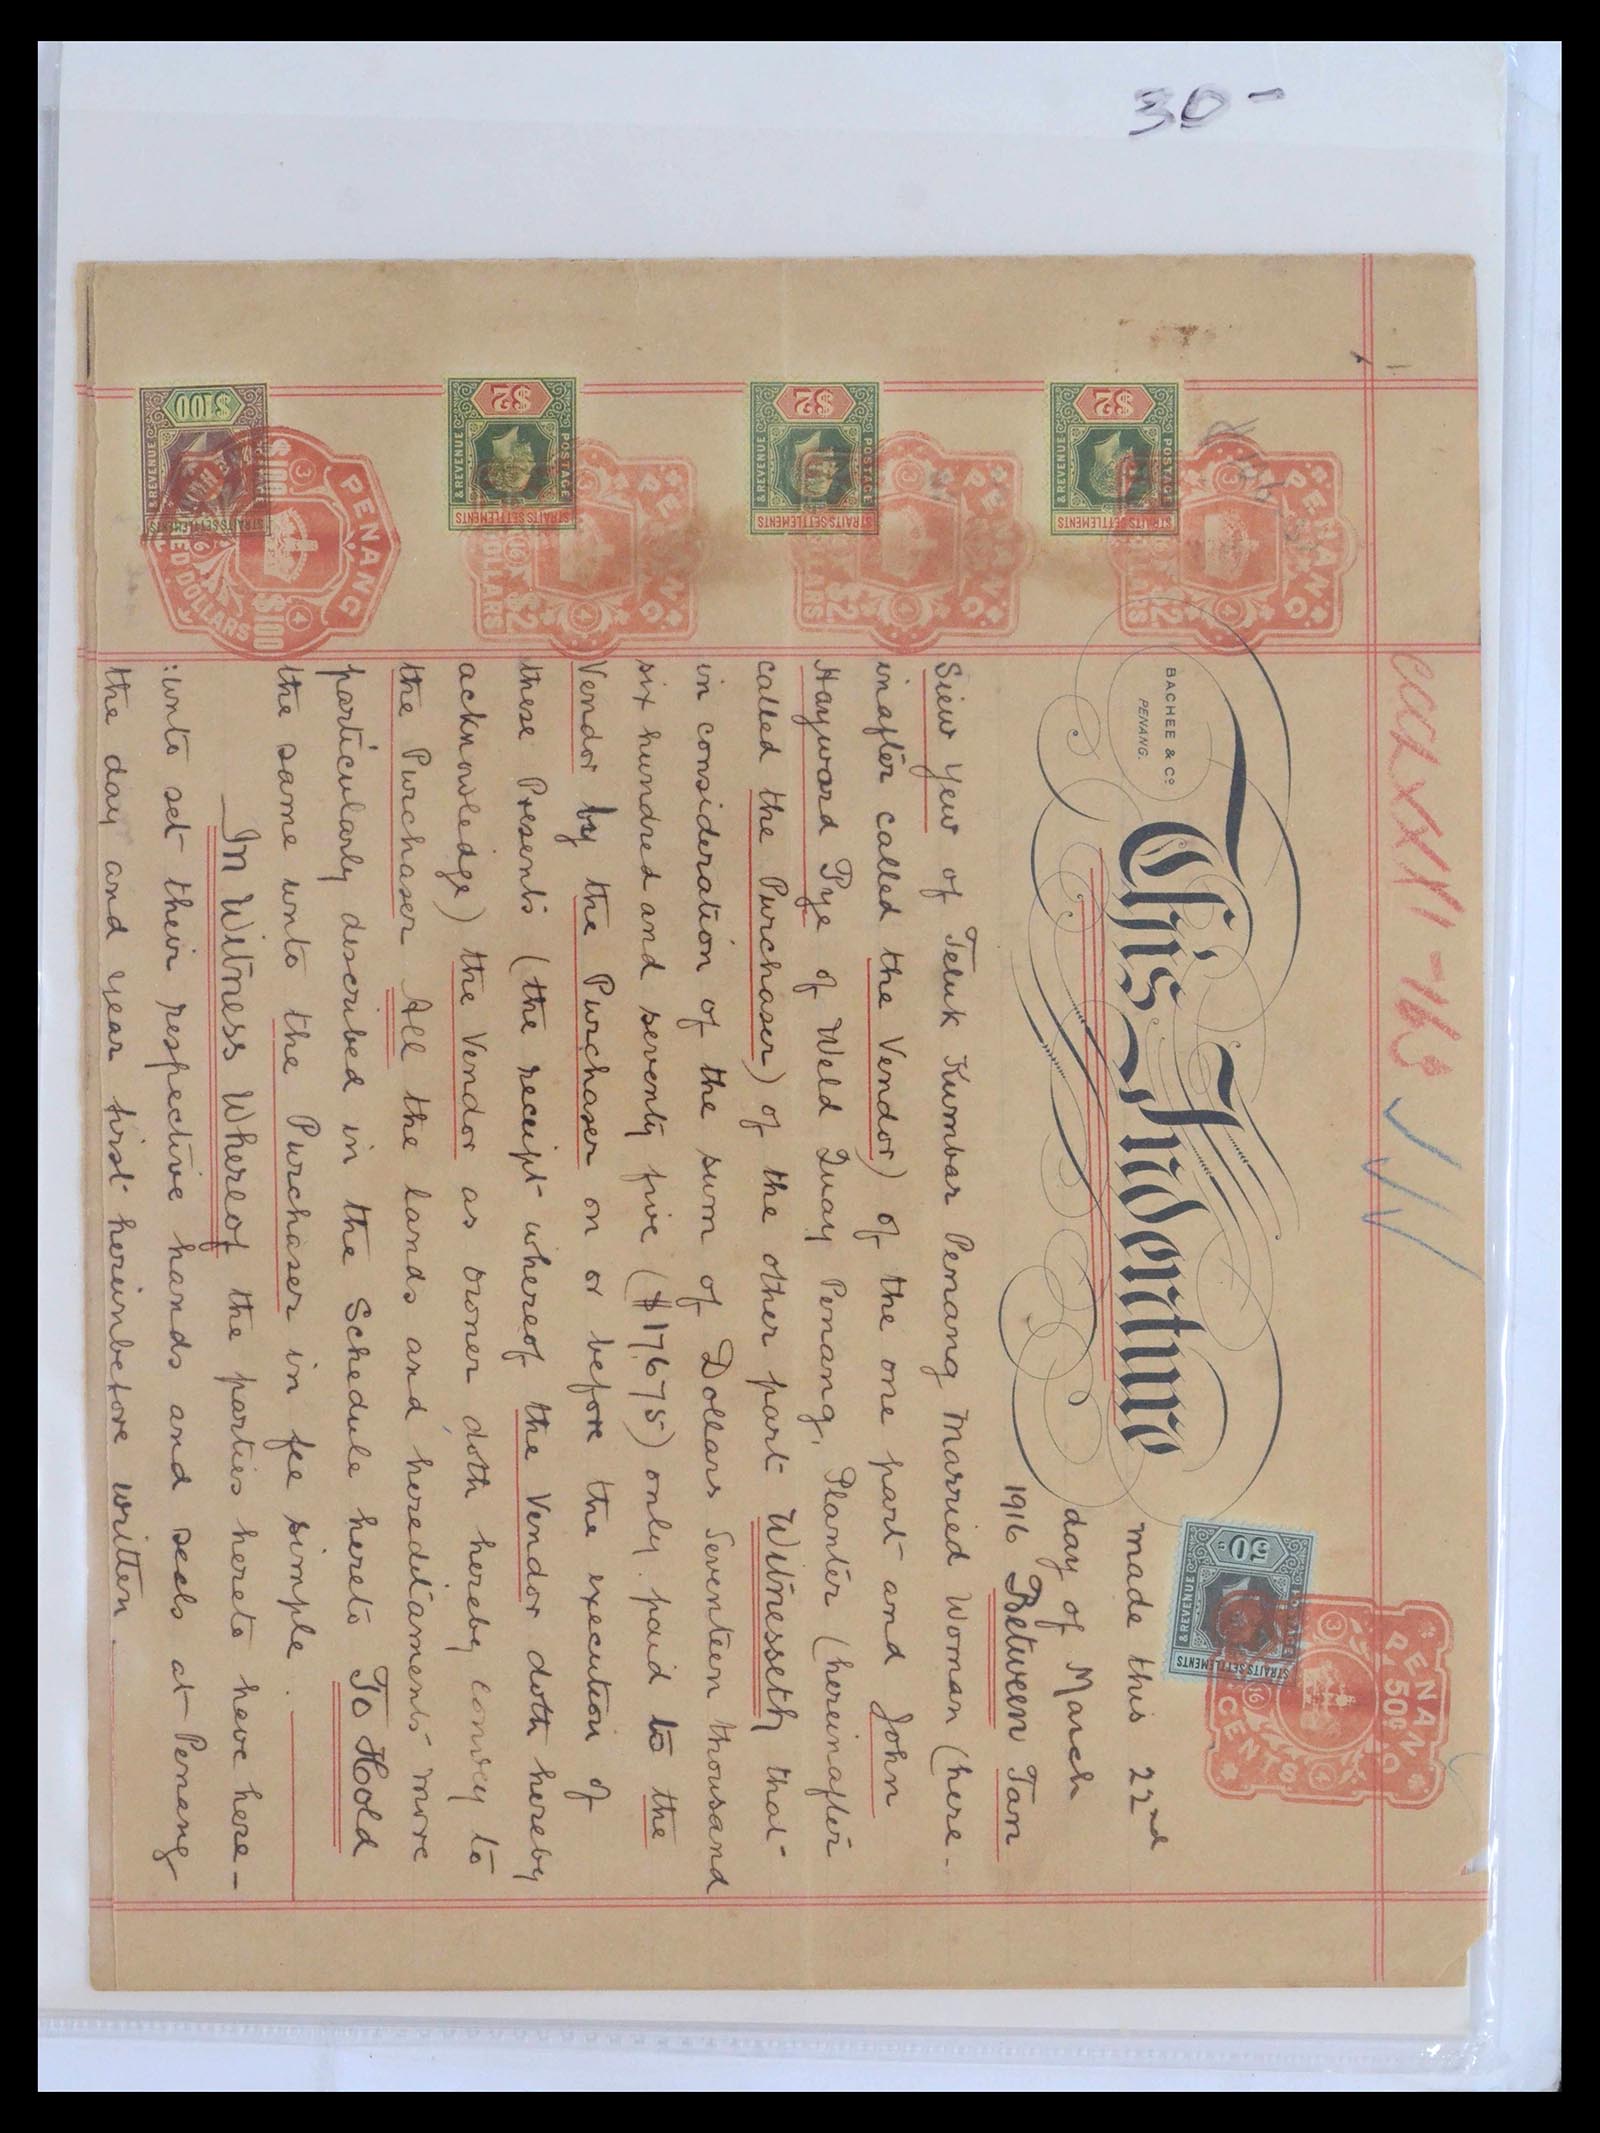 30-
CCCLXXII-
BACHEE & Co.
PENANG.
This Indenture
made this 22nd
day of March
1916 Between Tan
Siew Yew of Teluk Kumbar Penang Married Woman (here-
inafter called the Vendor) of the one part and John
Hayward Pye of Weld Quay Penang, Planter (hereinafter
called the Purchaser) of the other part Witnesseth that
in consideration of the sum of Dollars Seventeen thousand
six hundred and seventy five ($17675) only paid to the
Vendor by the Purchaser on or before the execution of
these Presents (the receipt whereof the Vendor doth hereby
acknowledge) the Vendor as owner doth hereby convey to
the Purchaser All the lands and hereditaments more
particularly described in the Schedule hereto To Hold
the same unto the Purchaser in fee simple.
In Witness Whereof the parties hereto have here-
:unto set their respective hands and seals at Penang
the day and year first hereinbefore written.
50c
POSTAGE
& REVENUE
STRAITS SETTLEMENTS
PENANG
50c
CENTS
3
4
16
$2
POSTAGE
& REVENUE
STRAITS SETTLEMENTS
PENANG
$2
DOLLARS
$2
POSTAGE
& REVENUE
STRAITS SETTLEMENTS
PENANG
$2
DOLLARS
$2
POSTAGE
& REVENUE
STRAITS SETTLEMENTS
PENANG
$2
DOLLARS
$100
& REVENUE
STRAITS SETTLEMENTS
PENANG
$100
$100
DOLLARS
3
4
16